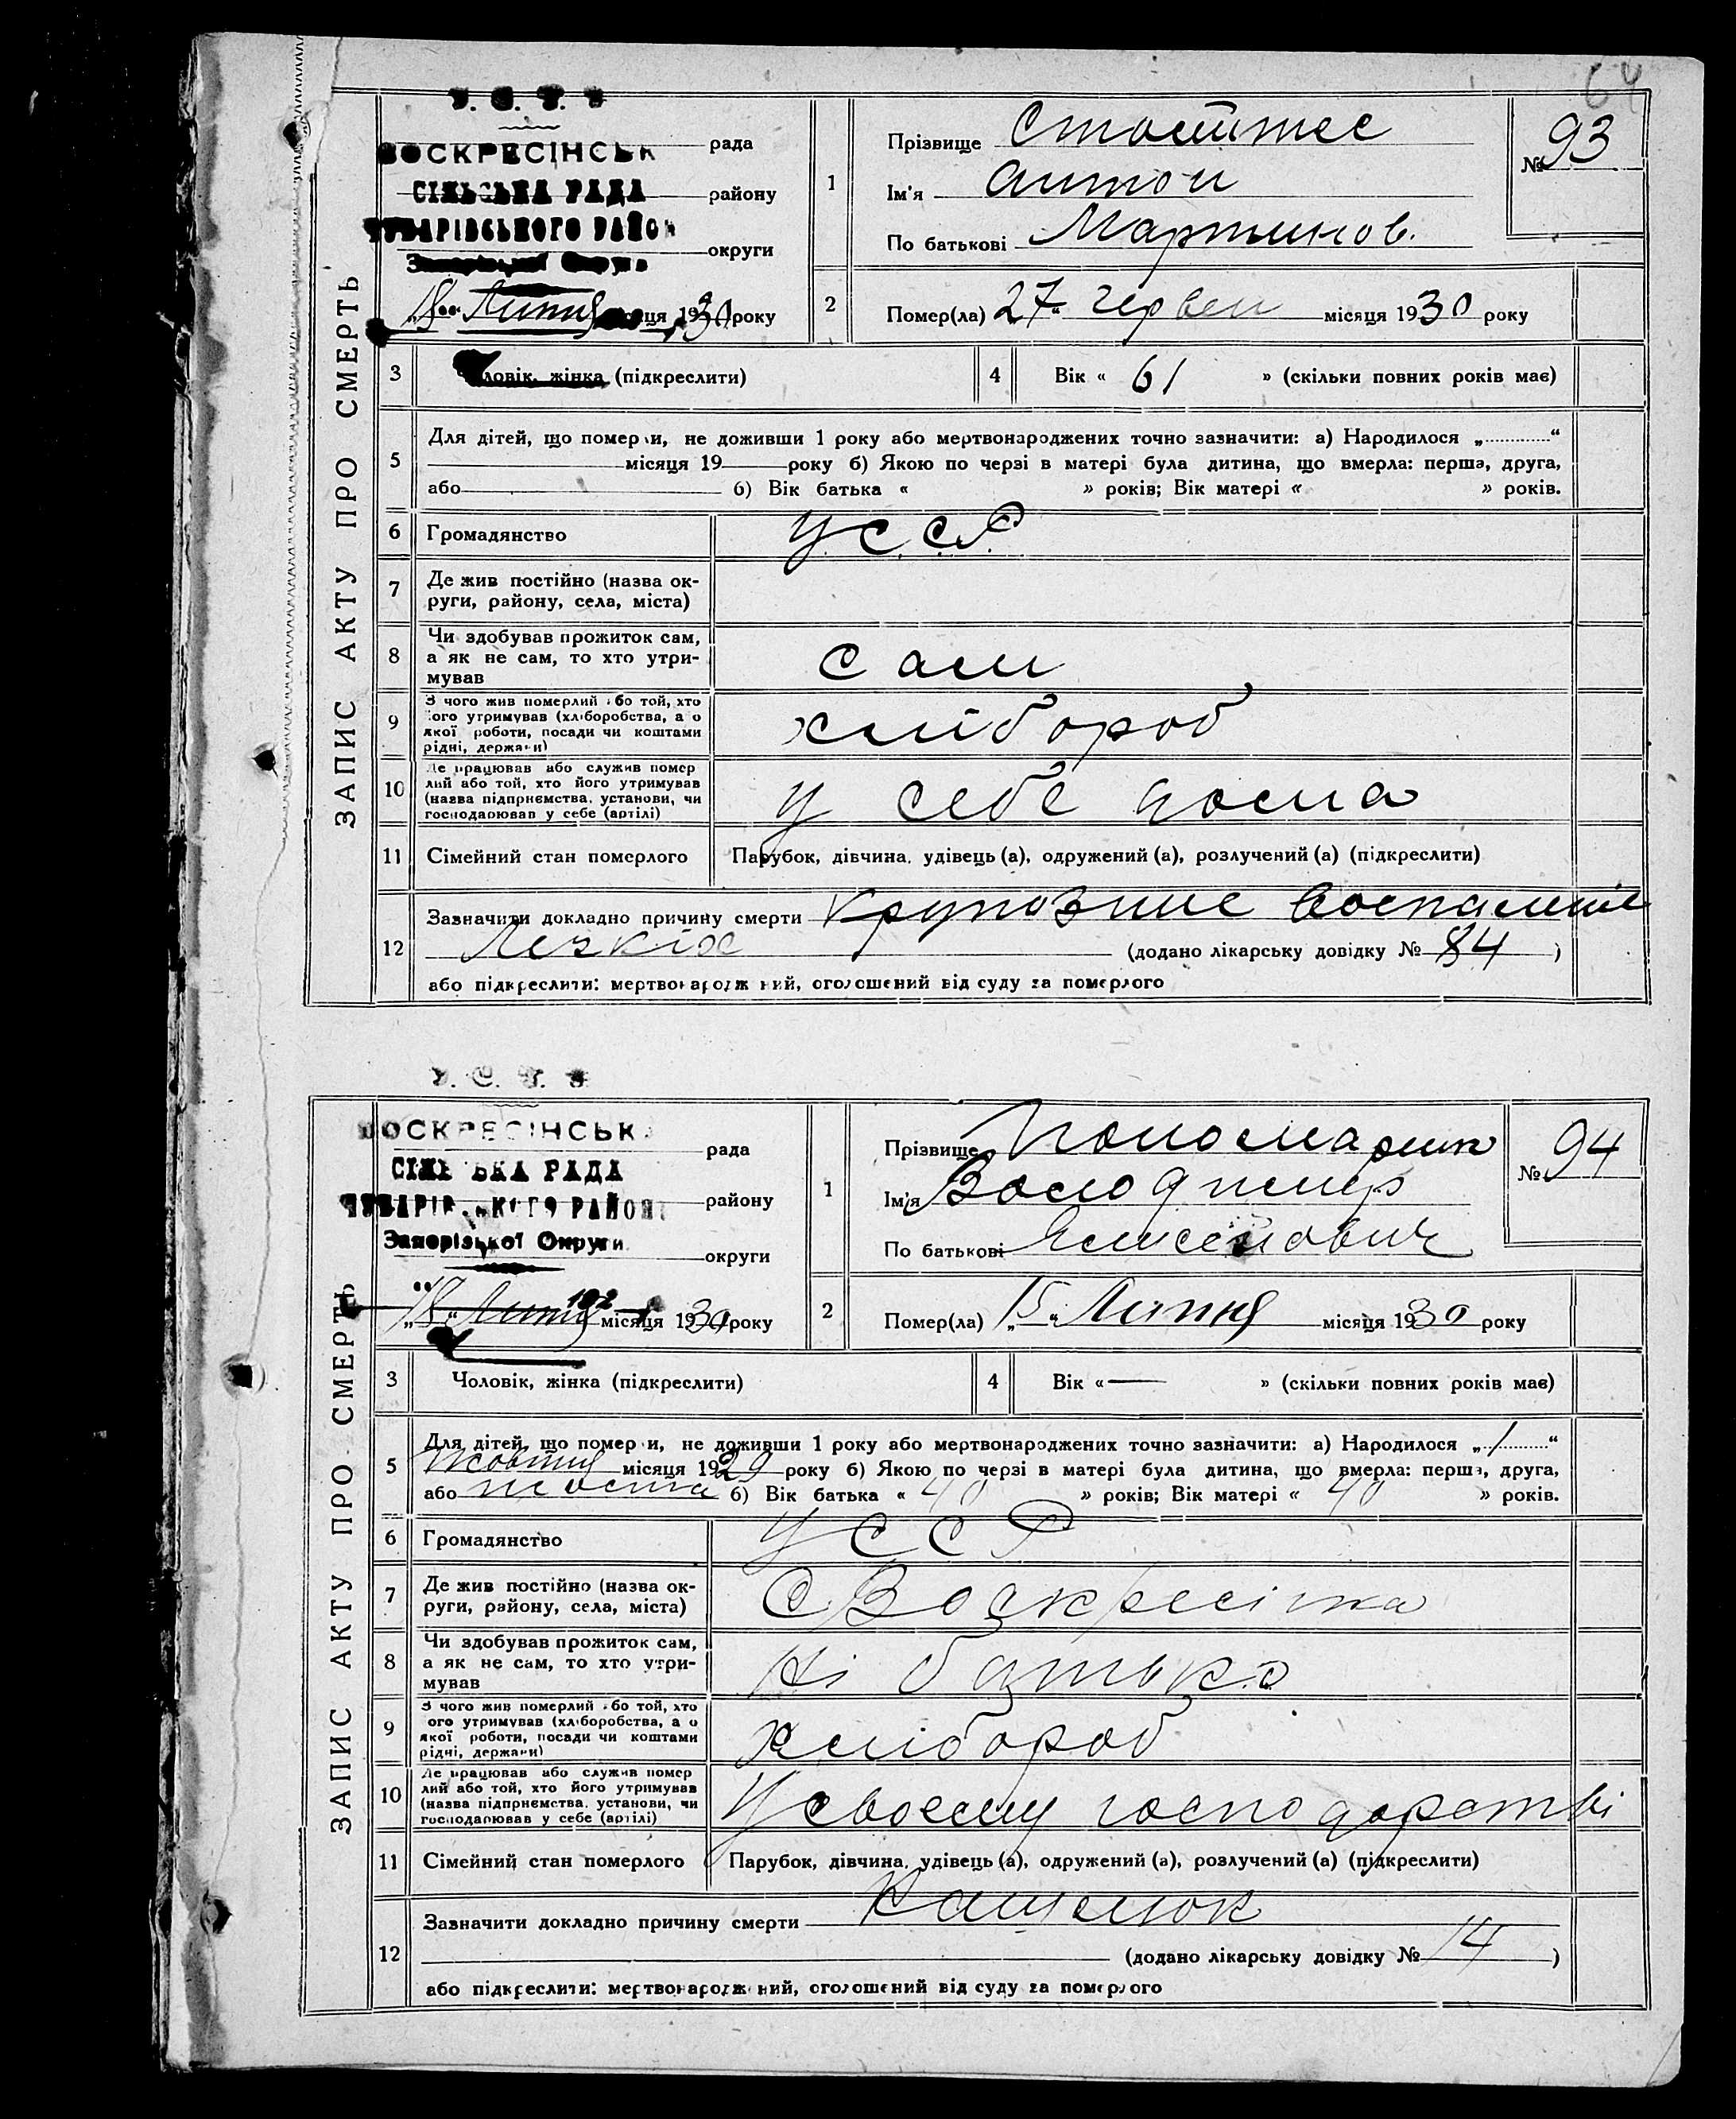 64
У. С. Р. Р.
ВОСКРЕСІНСЬК рада
СІЛЬСЬКА РАДА району
ЧУБАРІВСЬКОГО РАЙОН округи
Запорізької Округи
„18“ Липня місяця 1930 року
1
Прізвище
Ім'я Антон
По батькові Мартинов.
№ 93
2
Помер(ла) 27 „ червен місяця 1930 року
ЗАПИС АКТУ ПРО СМЕРТЬ
3 Чоловік, жінка (підкреслити)
4 Вік « 61 » (скільки повних років має)
5 Для дітей, що померли, не доживши 1 року або мертвонароджених точно зазначити: а) Народилося „............“
місяця 19 року б) Якою по черзі в матері була дитина, що вмерла: перша, друга,
або б) Вік батька « » років; Вік матері « » років.
6 Громадянство У С. С. Р.
7 Де жив постійно (назва ок-
руги, району, села, міста)
8 Чи здобував прожиток сам,
а як не сам, то хто утри-
мував
сам
9 З чого жив померлий або той, хто
його утримував (хліборобства, а о
якої роботи, посади чи коштами
рідні, держави)
хлібороб
10 Де працював або служив помер
лий або той, хто його утримував
(назва підприємства, установи, чи
господарював у себе (артілі)
у себе дома
11 Сімейний стан померлого Парубок, дівчина, удівець (а), одружений (а), розлучений (а) (підкреслити)
12 Зазначити докладно причину смерти Крупозние воспаление
Легкіх (додано лікарську довідку № 84 )
або підкреслити: мертвонароджений, оголошений від суду за померлого
У. С. Р. Р.
ВОСКРЕСІНСЬК рада
СІЛЬСЬКА РАДА району
ЧУБАРІВСЬКОГО РАЙОН
Запорізької Округи округи
192
„18“ Липня місяця 1930 року
1
Прізвище
Ім'я Володимир
По батькові Елисейович
№ 94
2
Помер(ла) „15“ Липня місяця 1930 року
ЗАПИС АКТУ ПРО СМЕРТЬ
3 Чоловік, жінка (підкреслити)
4 Вік «— » (скільки повних років має)
5 Для дітей, що померли, не доживши 1 року або мертвонароджених точно зазначити: а) Народилося „ 1 “
Жовтня місяця 1929 року б) Якою по черзі в матері була дитина, що вмерла: перша, друга,
або шоста б) Вік батька « 40 » років; Вік матері « 40 » років.
6 Громадянство У С С Р
7 Де жив постійно (назва ок-
руги, району, села, міста)
С Воскресінка
8 Чи здобував прожиток сам,
а як не сам, то хто утри-
мував
Ні батько
9 З чого жив померлий або той, хто
ого утримував (хліборобства, а о
якої роботи, посади чи коштами
рідні, держави)
хлібороб
10 Де працював або служив помер
лий або той, хто його утримував
(назва підприємства, установи, чи
господарював у себе (артілі)
У своему господарстві
11 Сімейний стан померлого Парубок, дівчина, удівець (а), одружений (а), розлучений (а) (підкреслити)
12 Зазначити докладно причину смерти Кашелюк
(додано лікарську довідку № 14 )
або підкреслити: мертвонароджений, оголошений від суду за померлого